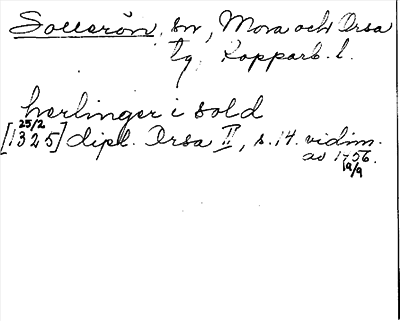 Sollerön, sn, Mora och Orsa
tg, Kopparb. l.
herlinger i sold
25/2
[1325] dipl. Orsa II, s. 14. vidim.
av 1756.
19/9